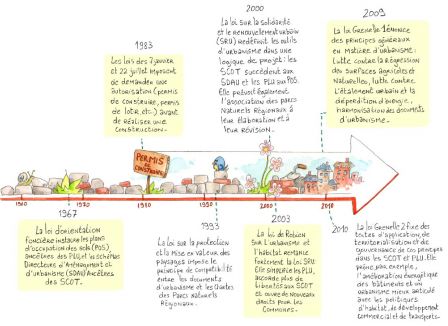 1983
Les lois des 7 janvier
et 22 juillet imposent
de demander une
autorisation (permis
de construire, permis
de lotir etc.) avant
de réaliser une
construction.
2000
La loi sur la solidarité
et le renouvellement urbain
(SRU) redéfinit les outils
d'urbanisme dans une
logique de projet : les
SCOT succèdent aux
SDAU et les PLU aux POS.
Elle prévoit également
l'association des parcs
Naturels Régionaux à
leur élaboration et à
leur révision.
2009
La loi Grenelle 1 énonce
des principes généraux
en matière d'urbanisme :
lutte contre la régression
des surfaces agricoles et
Naturelles, lutte contre
l'étalement urbain et la
déperdition d'énergie,
harmonisation des documents
d'urbanisme.
PERMIS
DE
CONSTRUIRE
1960
1970
1980
1990
2000
2010
1967
La loi d'orientation
foncière instaure les plans
d'occupation des sols (POS),
ancêtres des PLU, et les schémas
Directeurs d'Aménagement et
d'urbanisme (SDAU) Ancêtres
des SCOT.
1993
La loi sur la protection
et la mise en valeur des
paysages impose le
principe de compatibilité
entre les documents
d'urbanisme et les Chartes
des Parcs naturels
Régionaux.
2003
La loi de Robien
sur l'urbanisme et
l'habitat remanie
fortement la loi SRU.
Elle simplifie les PLU,
accorde plus de
libertés aux SCOT
et ouvre de nouveaux
droits pour les
communes.
2010
La loi Grenelle 2 fixe des
textes d'application, de
territorialisation et de
gouvernance de ces principes
dans les SCOT et PLU. Elle
prône par exemple,
l'amélioration énergétique
des bâtiments et un
urbanisme mieux articulé
avec les politiques
d'habitat, de développement
commercial et de transports.